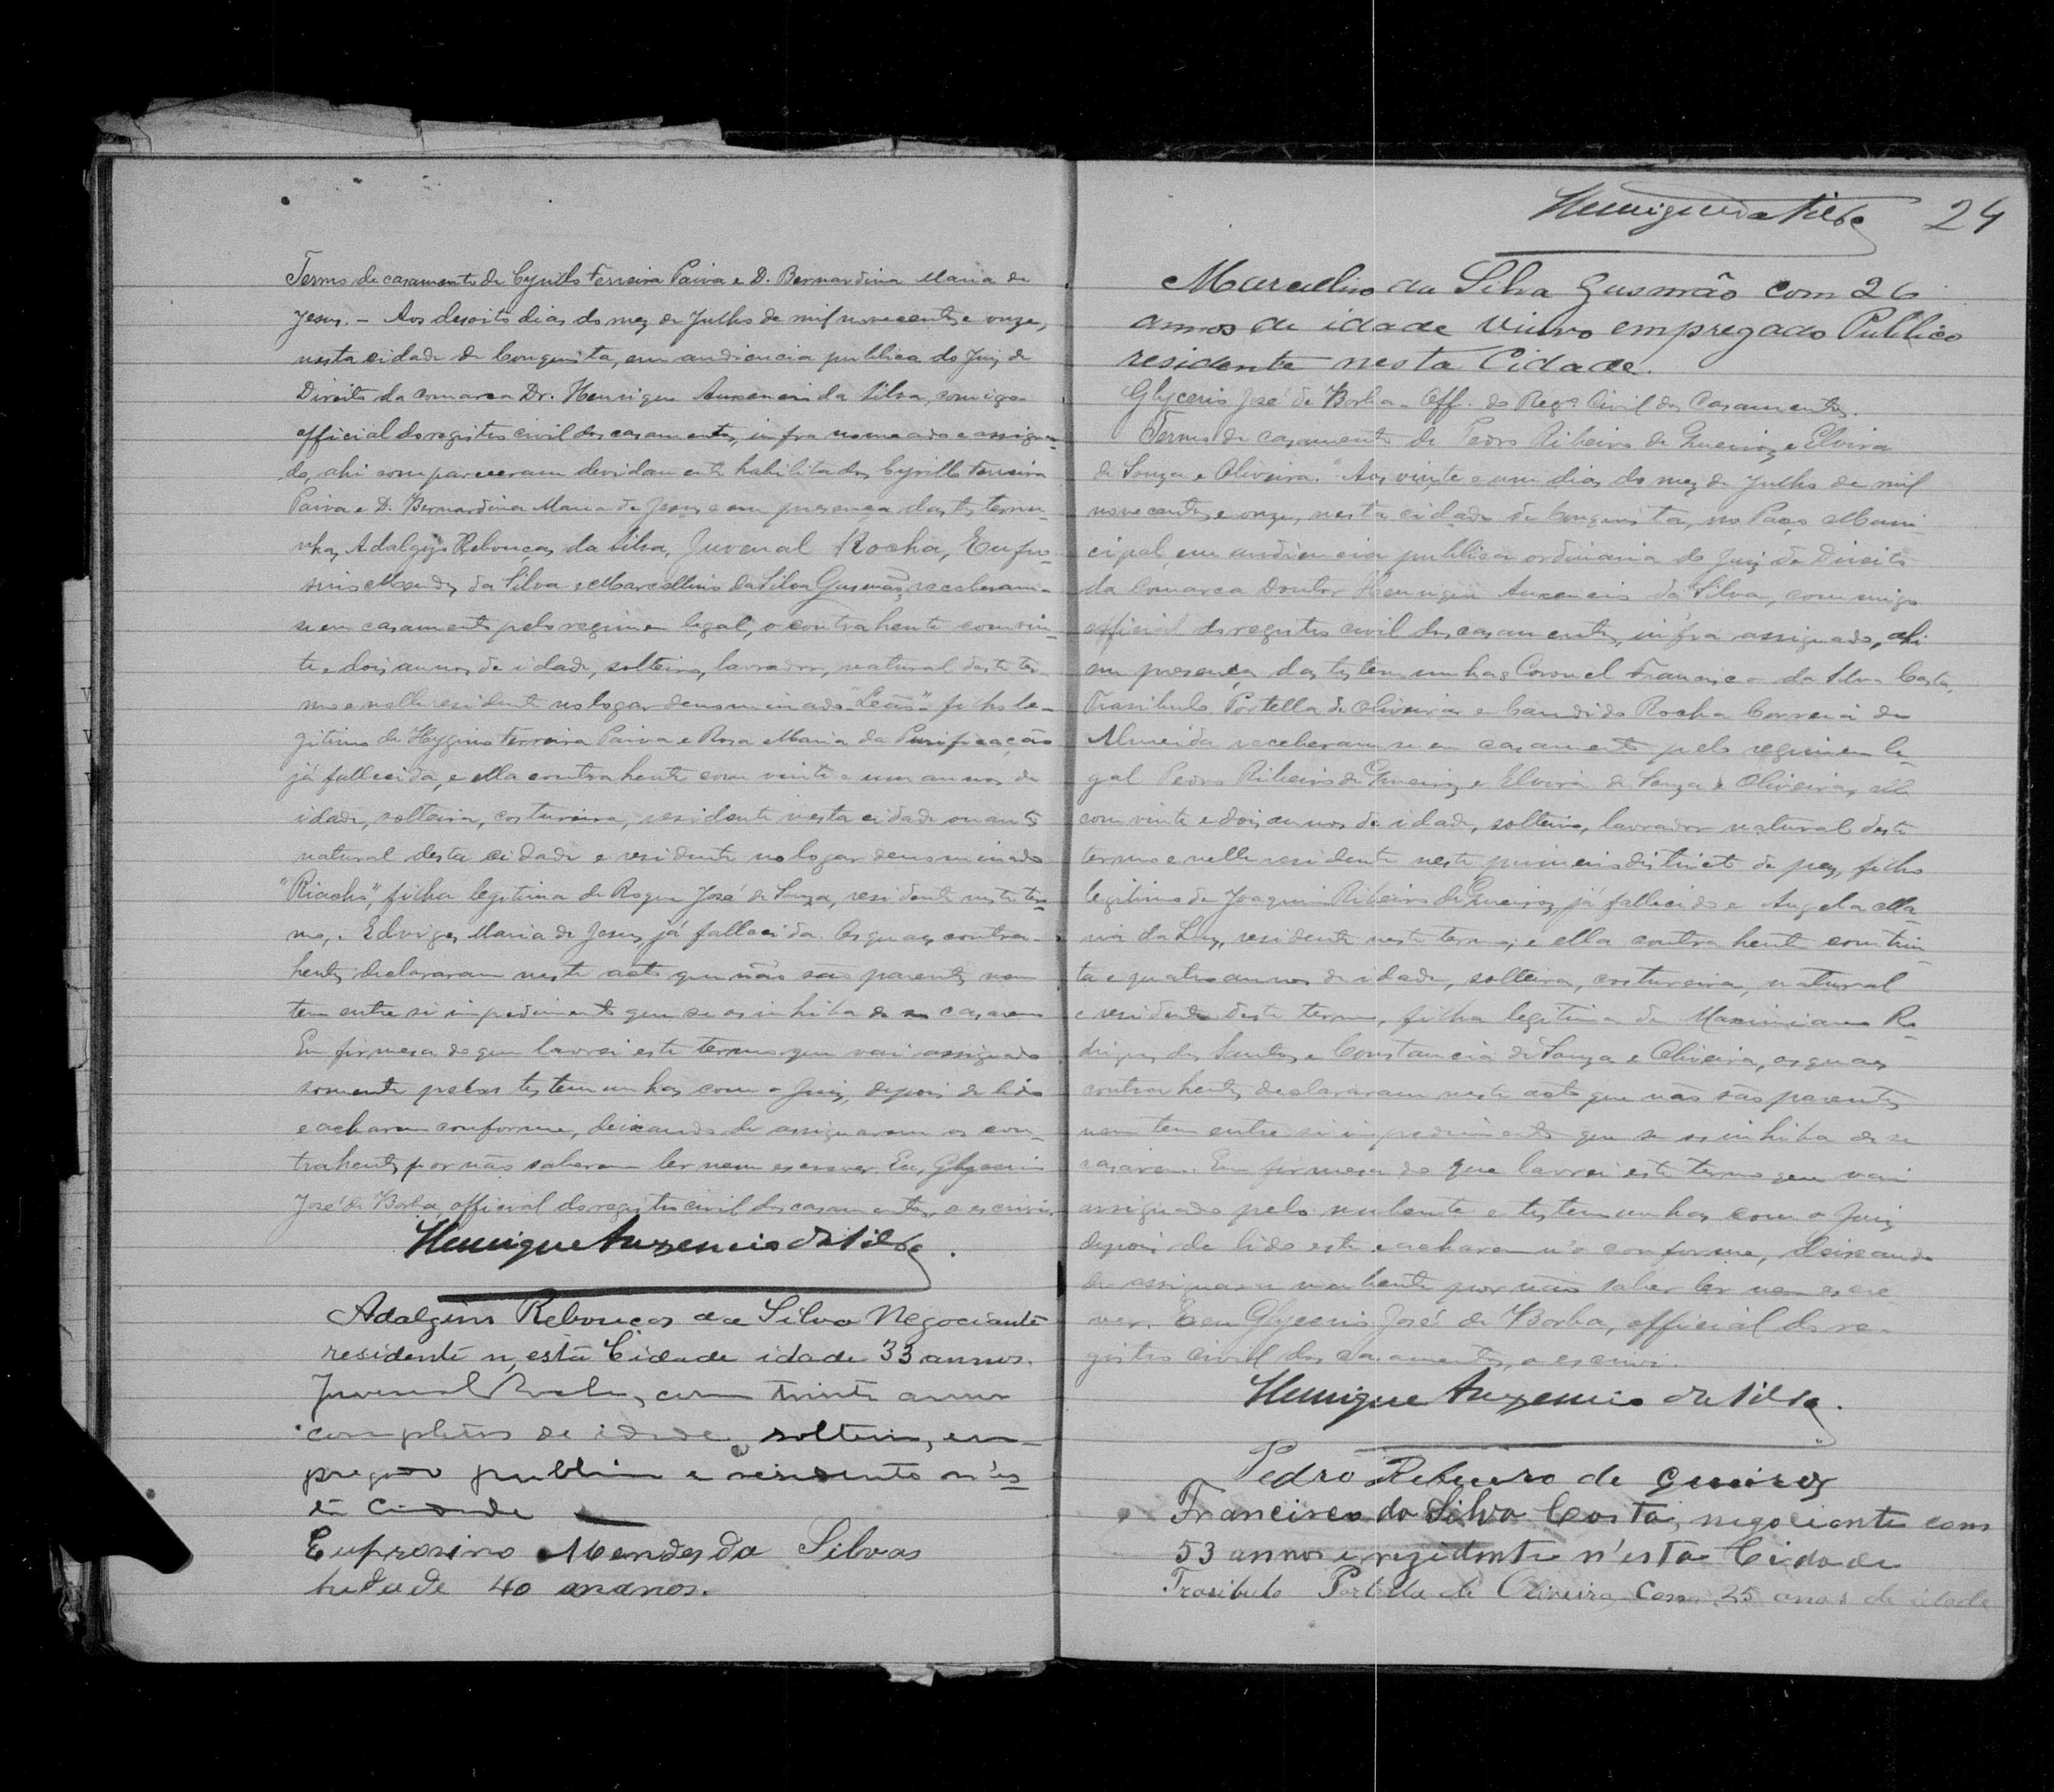 Termo de casamento de Cyrillo Ferreira Paiva e D. Bernardina Maria de
Jesus. — Aos desoito dias do mez de Julho de mil novecentos e onze,
nesta cidade de Conquista, em audiencia publica do Juiz de
Direito da comarca Dr. Henrique Auxencio da Silva, comigo
official do registro civil dos casamentos, infra nomeado e assigna-
do, ahi compareceram devidamente habilitados Cyrillo Ferreira
Paiva e D. Bernardina Maria de Jesus e em presença das testemu-
nhas Adalgizo Rebouças da Silva, Juvenal Rocha, Eufro-
sino Mendes da Silva e Marcellino da Silva Gusmão, receberam-
se em casamento pelo regimen legal, o contrahente com vin-
te e dois annos de idade, solteiro, lavrador, natural deste ter-
mo e nelle residente no logar denominado "Leão" filho le-
gitimo de Hygino Ferreira Paiva e Rosa Maria da Purificação
já fallecida, e ella contrahente com vinte e um annos de
idade, solteira, costureira, residente nesta cidade
natural desta cidade e residente no logar denominado
"Riacho", filha legitima de Roque José de Souza, residente neste ter-
mo, e Edviges Maria de Jesus, já fallecida. Os quaes contra-
hentes declararam neste acto que não são parentes nem
tem entre si impedimento que se os inhiba de se casarem
Em firmesa do que lavrei este termo que vai assignado
somente pelas testemunhas com o Juiz, depois de lido
e acharem conforme, deixando de assignarem os con-
trahentes por não saberem ler nem escrever. Eu, Glycerio
José de Borba, official do registro civil dos casamentos, o escrivi.
Henrique Auxencio da Silva.
Adalgizo Rebouças da Silva Negociante
residente n'esta Cidade idade 33 annos.
Juvenal Rocha, com trinta annos
completos de idade, solteiro, em-
pregado publico e residente n'es-
ta Cidade
Eufrosino Mendes da Silvas
hidade 40 ananos.
Henrique da Silva 24
Marcellino da Silva Gusmão com 26
annos de idade viuvo empregado Publico
residente nesta Cidade.
Glycerio José de Borba - Off. do Reg.º Civil dos Casamentos.
Termo de casamento de Pedro Ribeiro de Queiroz e Elvira
de Souza e Oliveira. Aos vinte e um dias do mez de Julho de mil
novecentos e onze, nesta cidade de Conquista, no Paço Muni
cipal, em audiencia publica ordinaria do Juiz de Direito
da Comarca Doutor Henrique Auxencio da Silva, commigo
official do registro civil dos casamentos, infra assignado, ahi
em presença das testemunhas Coronel Francisco da Silva Costa,
Trasibulo Portella de Oliveira e Candido Rocha Correia de
Almeida receberam-se em casamento pelo regimen le-
gal Pedro Ribeiro de Queiroz e Elvira de Souza e Oliveira, elle
com vinte e dois annos de idade, solteiro, lavrador natural deste
termo e nelle residente neste primeiro districto de paz, filho
legitimo de Joaquim Ribeiro de Queiroz, já fallecido e Angela Ma-
ria da Luz, residente neste termo; e ella contrahente com trin-
ta e quatro annos de idade, solteira, costureira, natural
e residente deste termo, filha legitima de Maximiano Ro
drigues dos Santos e Constancia de Souza e Oliveira, os quaes
contrahentes declararam neste acto que não são parentes
nem tem entre si impedimento que se os inhiba de se
casarem. Em firmesa do que lavrei este termo que vai
assignado pelo nubente e testemunhas com o Juiz
depois de lido este e acharem n'o conforme, deixando
de assignar a nubente por não saber ler nem escre
ver. Eu Glycerio José de Borba, official do re-
gistro civil dos casamentos, o escrivi.
Henrique Auxencio da Silva.
Pedro Ribeiro de Queiroz
Francisco da Silva Costa, negociante com
53 annos e rezidente n'esta Cidade
Trasibulo Portella de Oliveira com 25 anos de idade